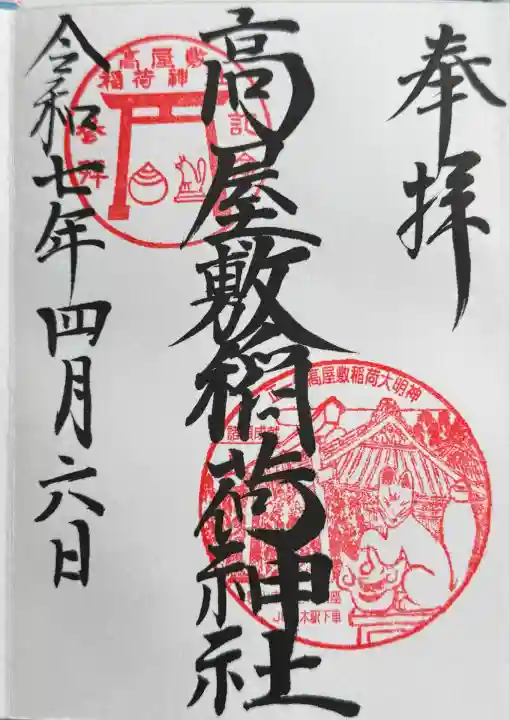 奉拝
高屋敷稲荷神社
令和七年四月六日
高屋敷
稲荷神
参拝
記
高屋敷稲荷大明神
諸願成就
座
木駅下車